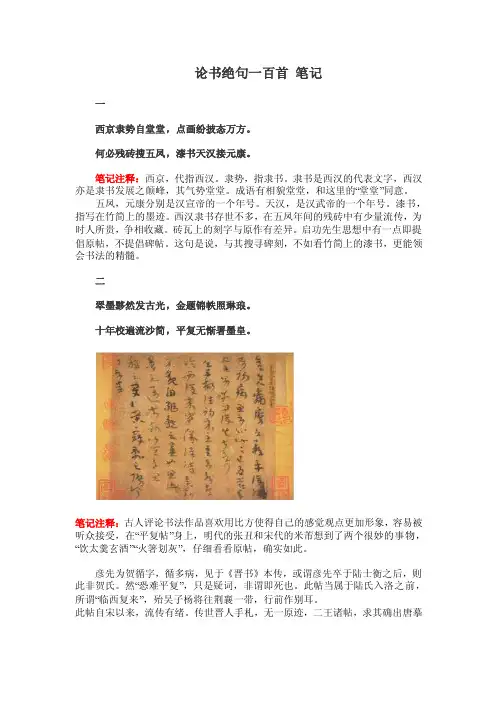 论书绝句一百首 笔记
一
西京隶势自堂堂，点画纷披态万方。
何必残砖搜五凤，漆书天汉接元康。
笔记注释：西京，代指西汉。隶势，指隶书。隶书是西汉的代表文字，西汉
亦是隶书发展之颠峰，其气势堂堂。成语有相貌堂堂，和这里的“堂堂”同意。
五凤，元康分别是汉宣帝的一个年号。天汉，是汉武帝的一个年号。漆书，
指写在竹简上的墨迹。西汉隶书存世不多，在五凤年间的残砖中有少量流传，为
时人所贵，争相收藏。砖瓦上的刻字与原作有差异。启功先生思想中有一点即提
倡原帖，不提倡碑帖。这句是说，与其搜寻碑刻，不如看竹简上的漆书，更能领
会书法的精髓。
二
翠墨黟然发古光，金题锦帙照琳琅。
十年校遍流沙简，平复无惭署墨皇。
笔记注释：古人评论书法作品喜欢用比方使得自己的感觉观点更加形象，容易被
听众接受，在“平复帖”身上，明代的张丑和宋代的米芾想到了两个很妙的事物，
“饮太羹玄酒”“火箸划灰”，仔细看看原帖，确实如此。
彦先为贺循字，循多病，见于《晋书》本传，或谓彦先卒于陆士衡之后，则
此非贺氏。然“恐难平复”，只是疑词，非谓即死也。此帖当属于陆氏入洛之前，
所谓“临西复来”，殆吴子杨将往荆襄一带，行前作别耳。
此帖自宋以来，流传有绪。传世晋人手札，无一原迹，二王诸帖，求其确出唐摹